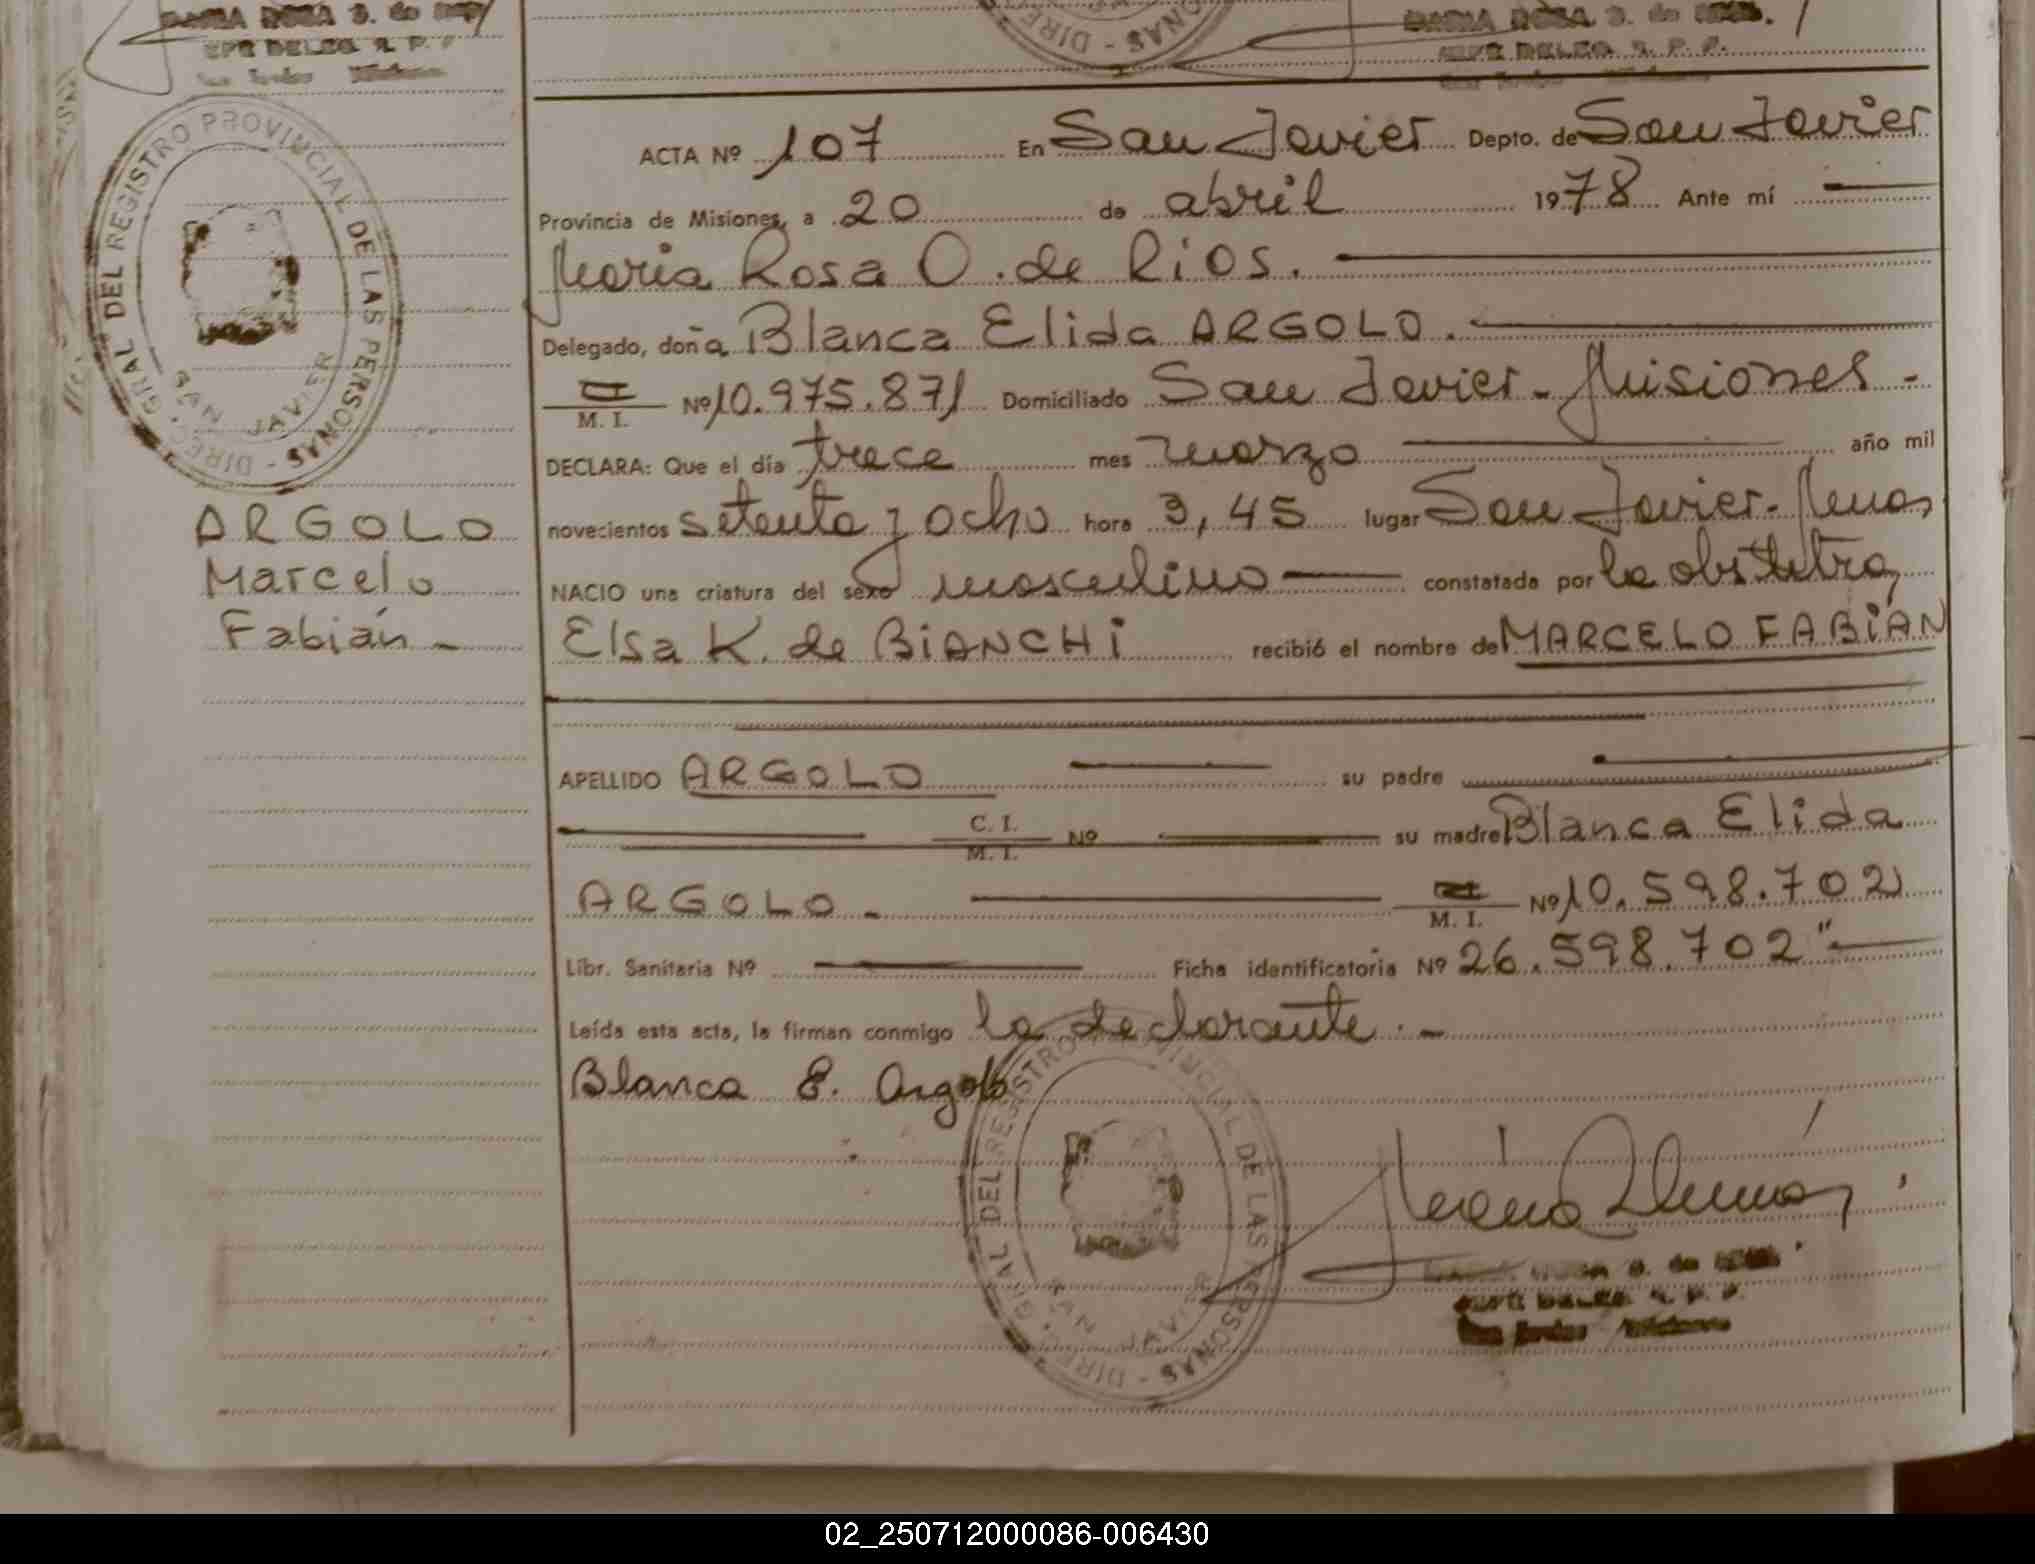 MARIA ROSA O. de RIOS
JEFE DELEG. R. P. P.
San Javier Misiones
MARIA ROSA O. de RIOS.
JEFE DELEG. R. P. P.
DIREC. GRAL. DEL REGISTRO PROVINCIAL DE LAS PERSONAS
SAN JAVIER
ARGOLO
Marcelo
Fabián -
ACTA Nº 107 En San Javier Depto. de San Javier
Provincia de Misiones, a 20 de abril 1978 Ante mí
Maria Rosa O. de Rios.
Delegado, doña Blanca Elida ARGOLO.
M. I. Nº 10.975.871 Domiciliado San Javier - Misiones -
DECLARA: Que el día trece mes marzo año mil
novecientos setenta y ocho hora 3,45 lugar San Javier - Mnes,
NACIO una criatura del sexo masculino constatada por la obstetra,
Elsa K. de BiANCHi recibió el nombre de MARCELO FABiÁN
APELLIDO ARGOLO su padre
C. I. M. I. Nº su madre Blanca Elida
ARGOLO - M. I. Nº 10.598.702
Libr. Sanitaria Nº Ficha identificatoria Nº 26.598.702"
Leída esta acta, la firman conmigo la declarante. -
Blanca E. Argolo
DIREC. GRAL. DEL REGISTRO PROVINCIAL DE LAS PERSONAS
SAN JAVIER
MARIA ROSA O. de RIOS
JEFE DELEG. R. P. P.
San Javier Misiones
02_250712000086-006430